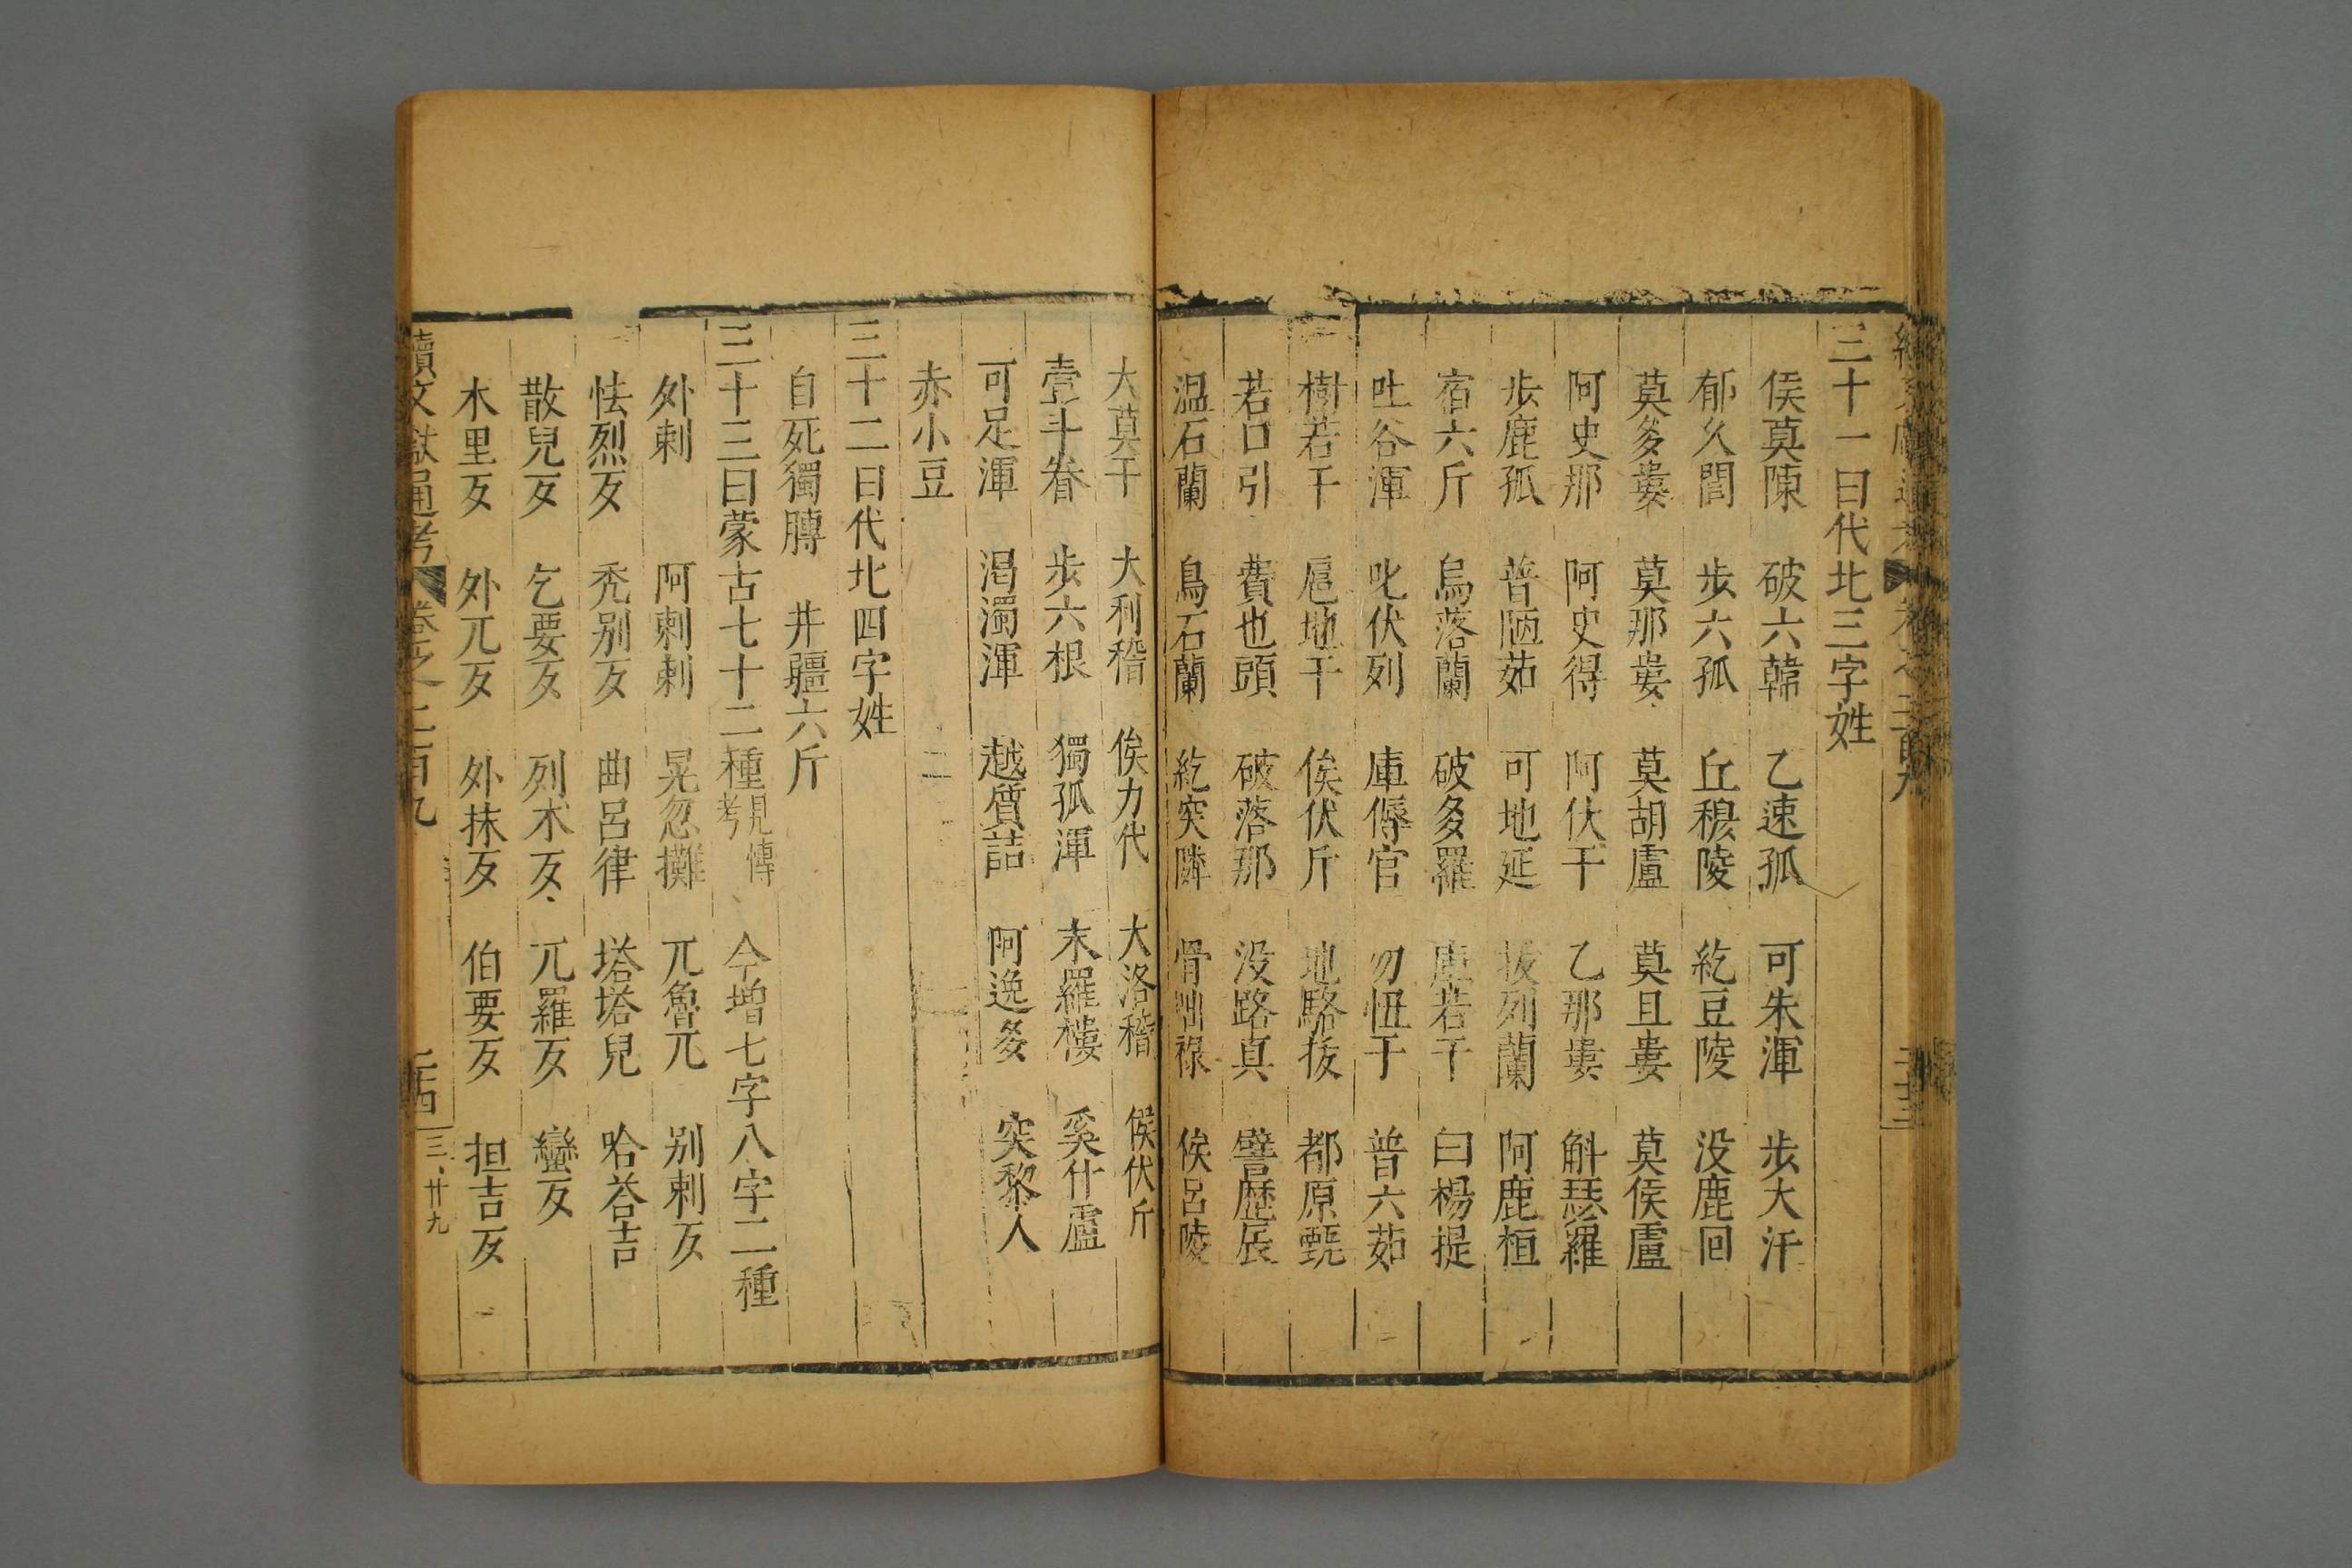 三十一曰代北三字姓
侯莫陳 破六韓 乙速孤 可朱渾 步大汗
郁久閭 步六孤 丘穆陵 紇豆陵 没鹿回
莫多婁 莫那婁 莫胡盧 莫且婁 莫侯盧
阿史那 阿史得 阿伏干 乙那婁 斛瑟羅
步鹿孤 普陋茹 可地延 拔列蘭 阿鹿桓
宿六斤 烏落蘭 破多羅 庫若干 曰楊提
吐谷渾 叱伏列 庫傉官 勿忸于 普六茹
樹若干 扈地干 俟伏斤 地駱拔 都原甄
若口引 費也頭 破落那 没路真 譬歷辰
温石蘭 烏石蘭 紇突隣 骨咄祿 俟呂陵
大莫干 大利稽 俟力代 大洛稽 候伏斤
壹斗眷 步六根 獨孤渾 末羅樓 奚什盧
可足渾 渴濁渾 越質詰 阿逸多 突黎人
赤小豆
三十二曰代北四字姓
自死獨膊 井疆六斤
三十三曰蒙古七十二種 見愽考 今増七字八字二種
外剌 阿剌剌 晃忽攤 兀魯兀 别剌歹
怯烈歹 秃别歹 曲呂律 塔塔兒 哈荅吉
散兒歹 乞要歹 列术歹 兀羅歹 蠻歹
木里歹 外兀歹 外抹歹 伯要歹 担吉歹
續文獻通考 卷之二百九 二十四
三 卅九